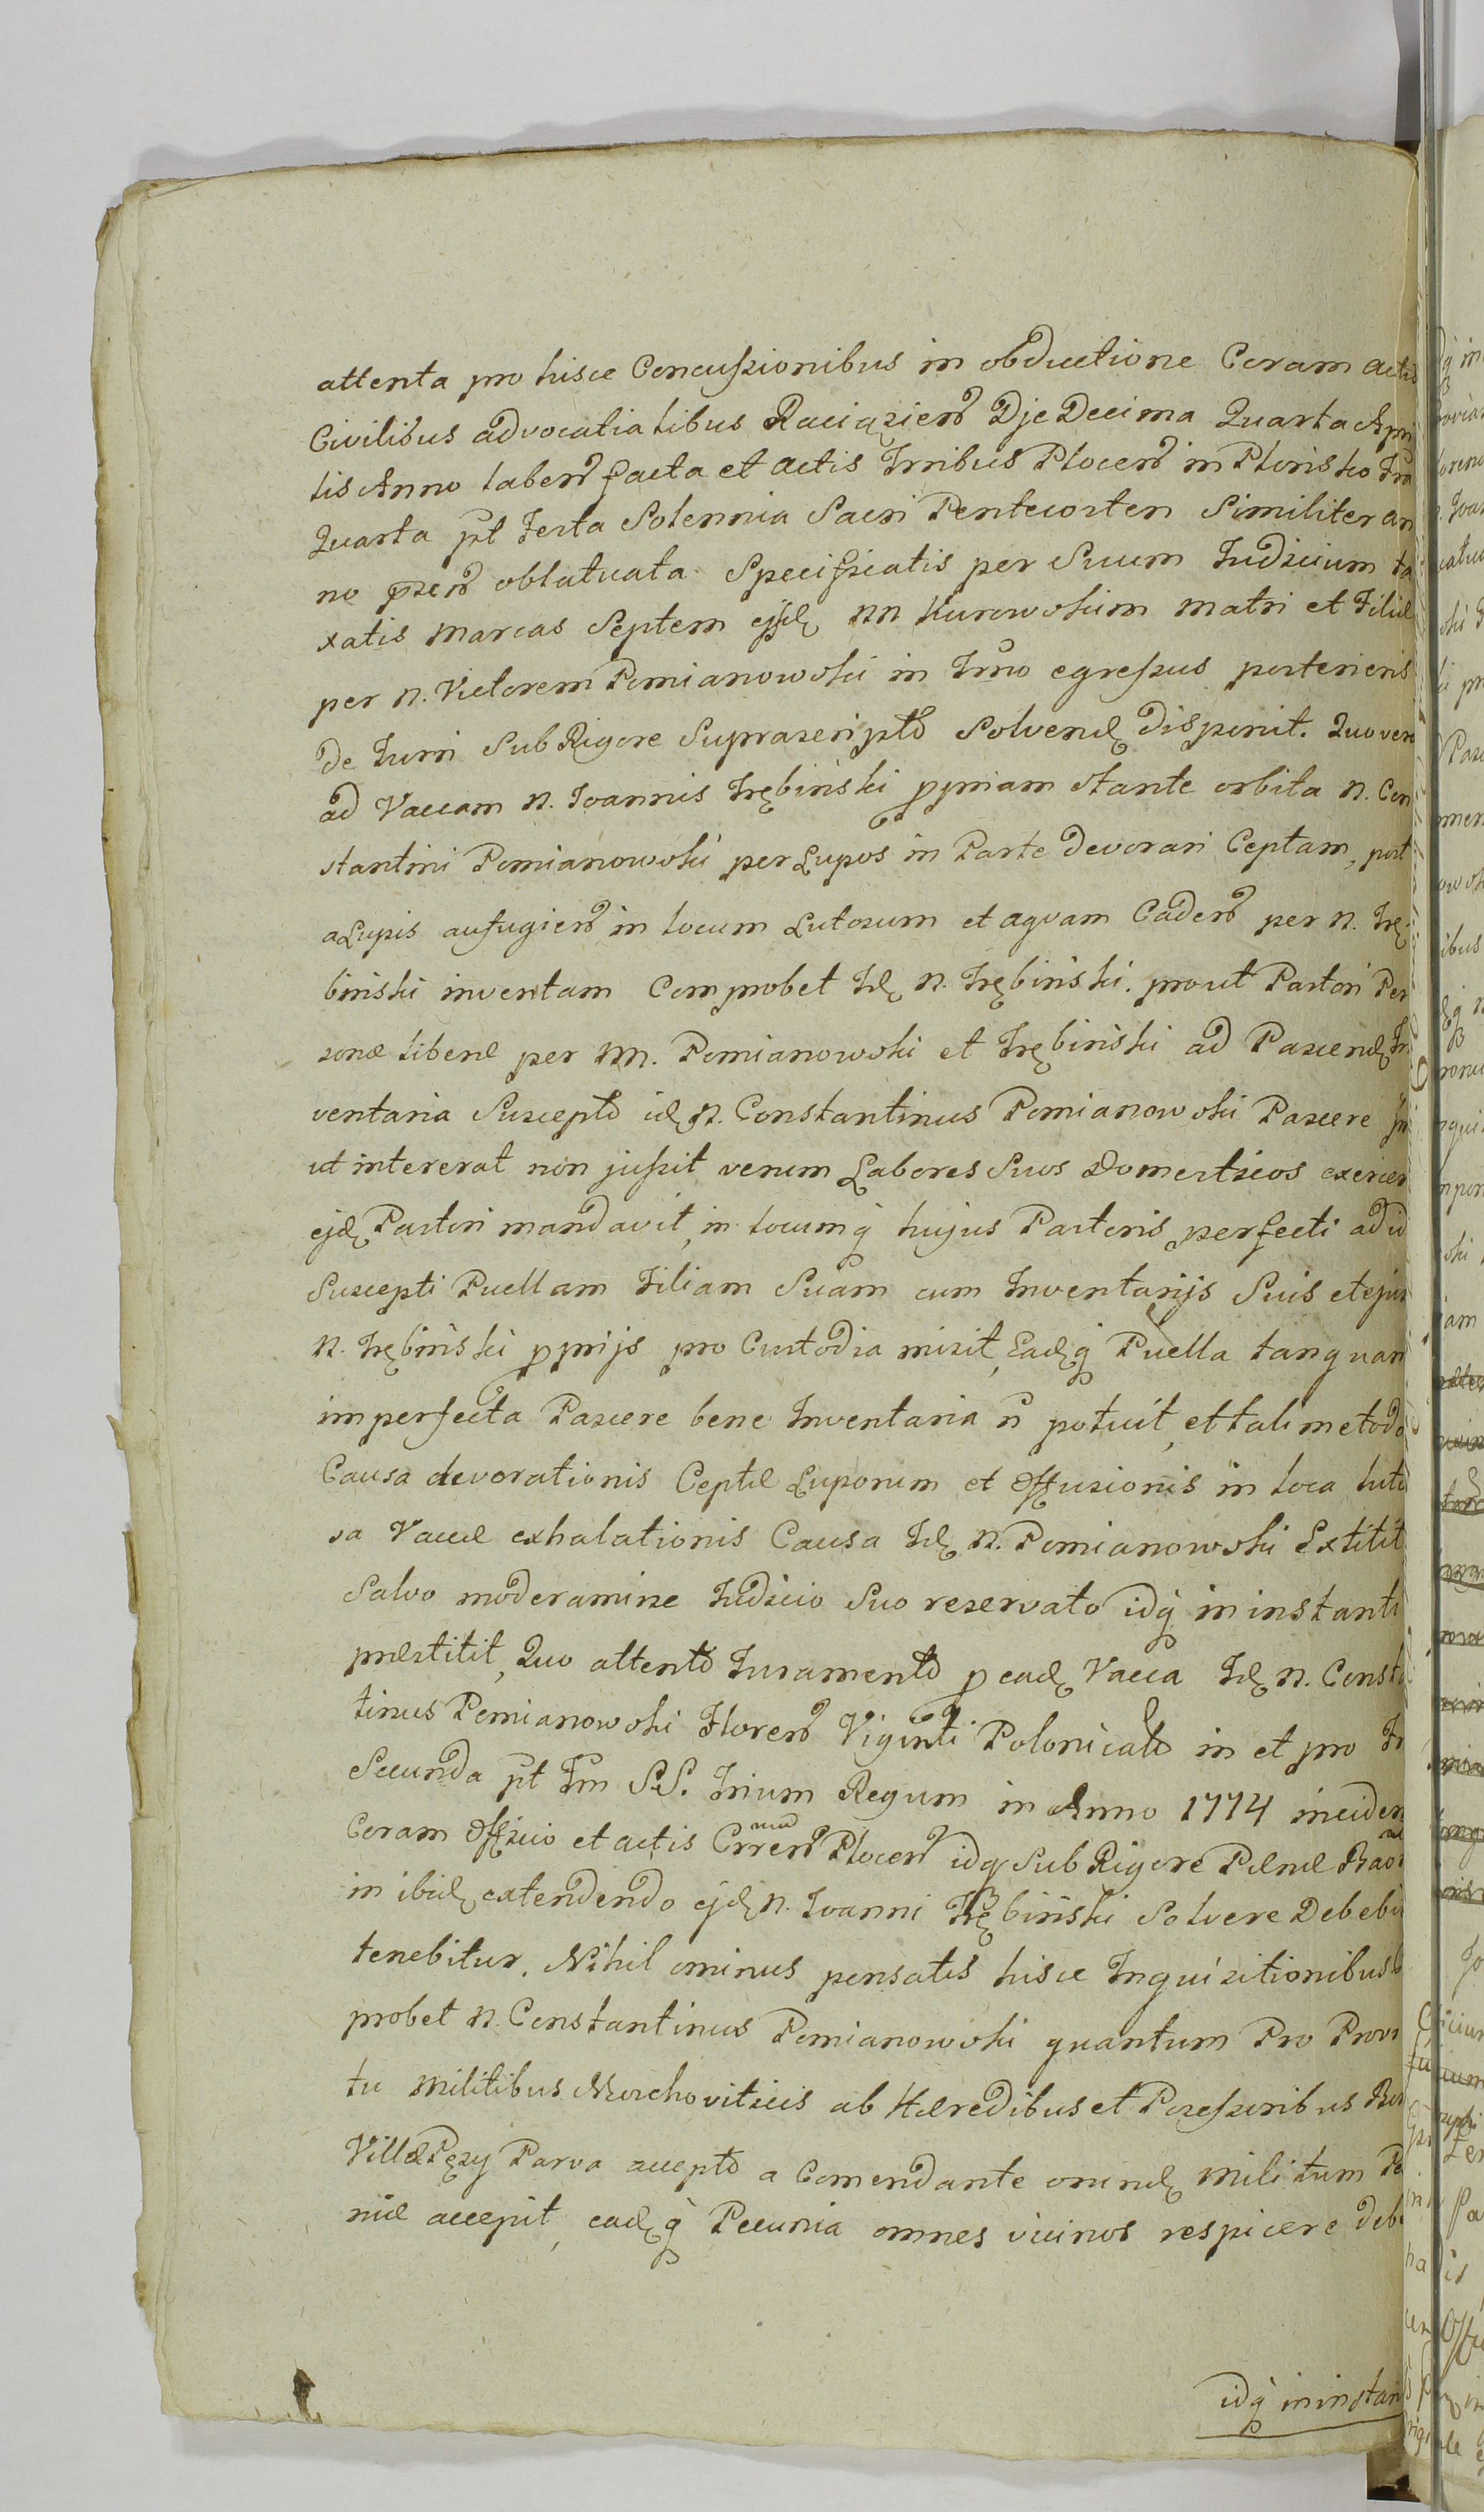 attenta pro hisce Concussionibus in obductione Coram actis
Civilibus advocatialibus Raciązien Dje Decima Quarta Apri
lis Anno laben facta et actis Trribus Plocen in Plonisko Fra
Quarta pt Festa Solennia Sacri Pentecosten Similiter an
no pzen oblatuata Specificatis per Suum Iudicium ta
xatis marcas Septem ejsd NN Kurowskim matri et Filiæ
per N. Victorem Pomianowski in Trno egressus posterioris
de Turri Sub Rigore Suprascripto Solvend disponit. Quo vero
ad Vaccam N. Joannis Trębinski ppriam stante orbita N. Con
stantini Pomianowski per Lupos in Parte devorari Ceptam, post
a Lupis aufugien in locum Lutosum et aquam Caden per N. Trę
binski inventam Comprobet Id N. Trębinski. prout Pastori Per
sonæ liberæ per NN. Pomianowski et Trębinski ad Pascend In
ventaria Suscepto id N. Constantinus Pomianowski Pascere
ut intererat non jussit verum Labores Suos Domesticos exercer
ejd Pastori mandavit, in locumq hujus Pastoris perfecti ad id
Suscepti Puellam Filiam Suam cum Inventarijs Suis et ejus
N. Trębinski pprijs pro Custodia misit, Eadq Puella tanquam
imperfecta Pascere bene Inventaria n potuit, et tali metodo
Causa devorationis Ceptæ Luporum et Effusionis in loca luto
sa Vaccæ exhalationis Causa Id N. Pomianowski Extitit
Salvo moderamine Iudicio Suo reservato idq in instanti
præstitit, Quo attento Iuramento p ead Vacca Id N. Consta
tinus Pomianowski Floren Viginti Polonicales in et pro Fr
Secunda pt Fm S.S. Trium Regum in Anno 1774 inciden
Coram Officio et actis Crren Plocen idq Sub Rigore Pænæ Bao
in ibid extendendo ejd N. Joanni Trębinski Solvere Debebit
tenebitur. Nihil ominus pensatis hisce Inquisitionibus
probet N. Constantinus Pomianowski quantum Pro Prov
tu militibus Morchoviticis ab Hæredibus et Possessoribus Bon
Villæ Pęsy Parva accepto a Comendante eorund militum Pe
niæ accepit, eadq Pecunia omnes vicinos respicere deb
idq in instan